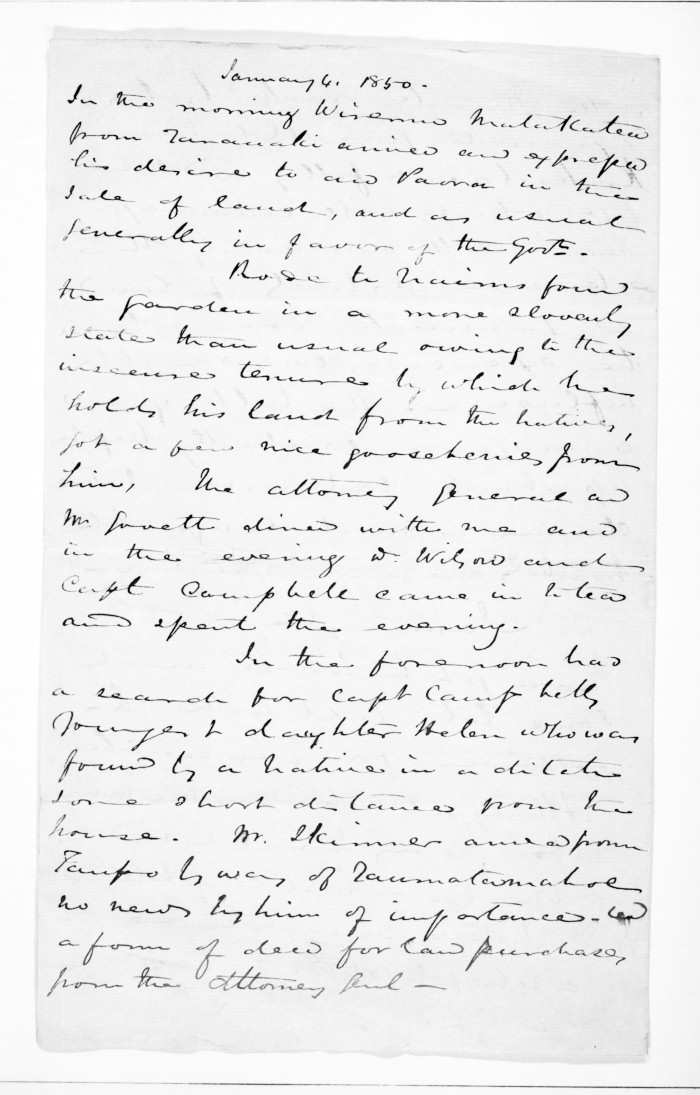 January 4. 1850.
In the morning Wiremu Matakatea
from Taranaki arrived and expressed
his desire to aid Paora in the
sale of land, and as usual
generally in favor of the Govt.
Rode to Nairns found
the garden in a more slovenly
state than usual owing to the
insecure tenure by which he
holds his land from the natives,
got a few nice gooseberries from
him, The Attorney General and
Mr. Govett dined with me and
in the evening Dr. Wilson and
Capt Campbell came in to tea
and spent the evening.
In the forenoon had
a search for Capt Campbells
youngest daughter Helen who was
found by a native in a ditch
some short distance from the
house. Mr. Skinner arrived from
Taupo by way of Taumatamahoe
no news by him of importance.
a form of deed for land purchases
from the Attorney Genl —